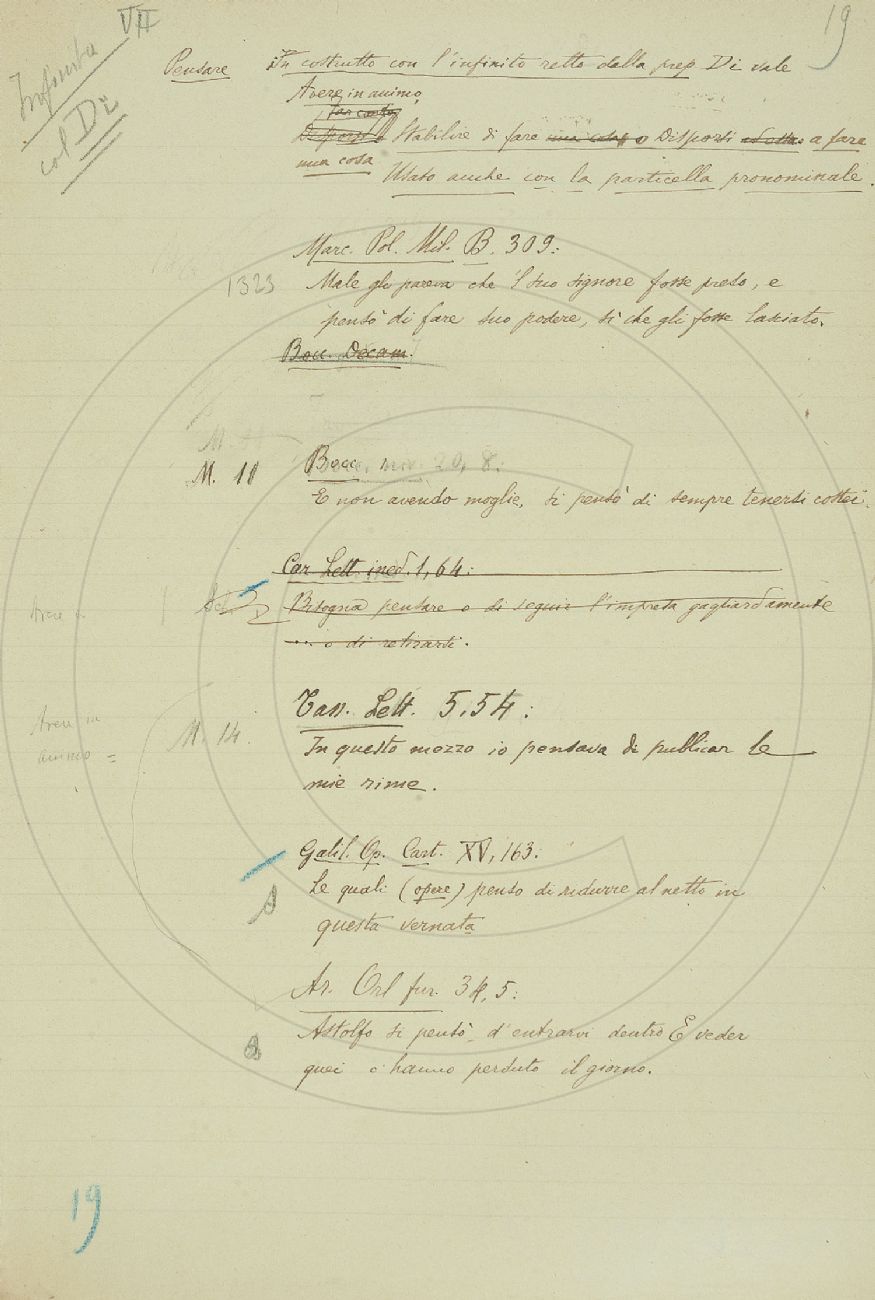 VII
19
Infinito
col Di
Pensare In costrutto con l'infinito retto dalla prep Di vale
Avere in animo,
far conto
Disporsi Stabilire di fare una cosa o Disporsi a fare
una cosa
Usato anche con la particella pronominale.
Marc. Pol. Mil. B. 309:
1323 Male gli pareva che 'l suo signore fosse preso, e
pensò di fare suo podere, sì che gli fosse lasciato.
Bocc. Decam.
M. 18 Bocc. nov. 20, 8:
E non avendo moglie, si pensò di sempre tenersi costei.
Car Lett. ined. 1, 64:
Bisogna pensare o di seguir l'impresa gagliardamente
... o di ritirarsi.
Tass. Lett. 5.54:
Avere in
animo =
M. 14. In questo mezzo io pensava di publicar le
mie rime.
Galil. Op. Cart. XV, 163:
Le quali (opere) penso di ridurre al netto in
questa vernata
Ar. Orl fur. 34, 5:
Astolfo si pensò d'entrarvi dentro E veder
quei c'hanno perduto il giorno.
19